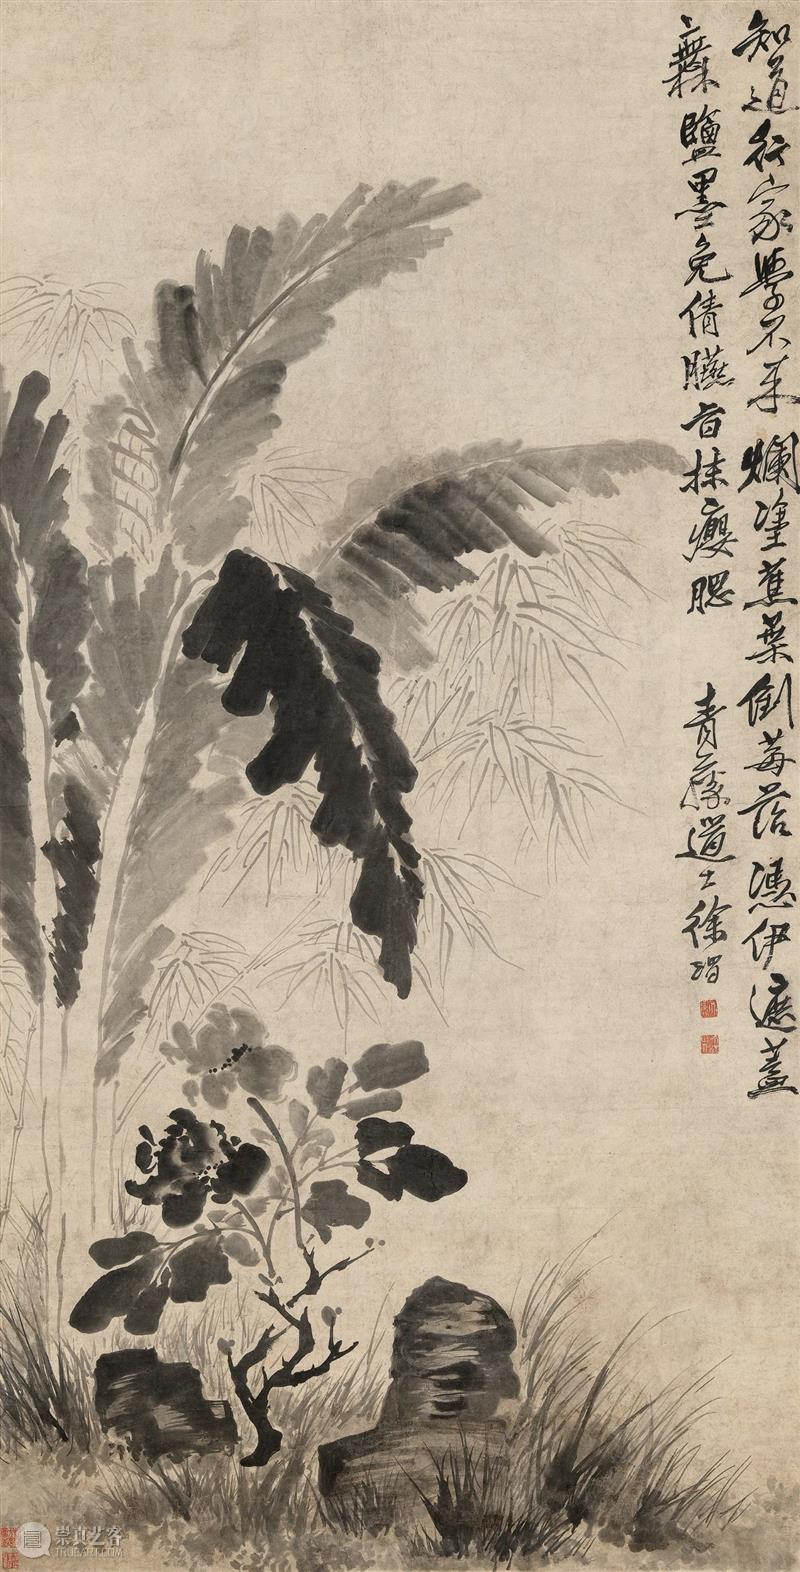 知道行家學不來爛塗蕉葉倒莓苔憑伊遮蓋
無鹽墨免倩臙脂抹癭腮
青藤道士徐渭
崇真艺客
TRUEART.COM